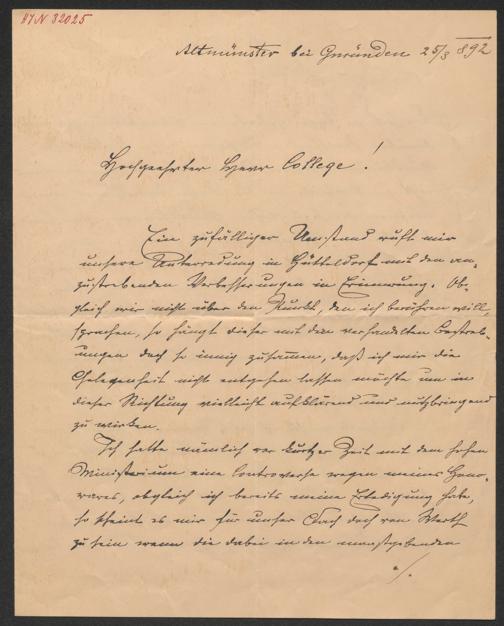 HJN 32025
Altmünster bei Gmunden 25/3 892
Hochgeehrter Herr College!
Ein zufälliger Umstand ruft mir
unsere Unterredung in Hütteldorf mit den an-
zustrebenden Verbesserungen in Erinnerung. Ob-
gleich wir nicht über den Punkt, den ich berühren will,
sprachen, so hängt dieser mit den verhandelten Bestreb-
ungen doch so innig zusammen, daß ich mir die
Gelegenheit nicht entgehen lassen möchte um in
dieser Richtung vielleicht aufklärend und nutzbringend
zu wirken.
Ich hatte nämlich vor kurtzer Zeit mit dem hohen
Ministerium eine Controverse wegen meines Hono-
rares, obgleich ich bereits meine Erledigung habe,
so scheint es mir für unser Fach doch von Werth
zu sein wenn die dabei in den maasgebenden
./.